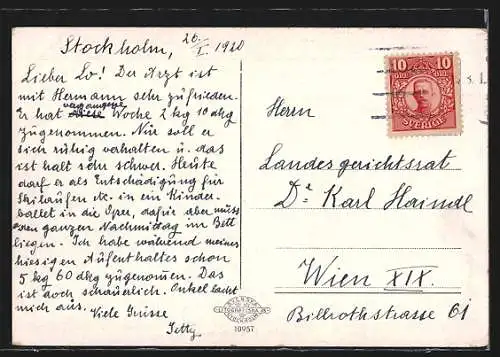 Stockholm, 20. I. 1920
Lieber Lo! Der Arzt ist
mit Hermann sehr zufrieden.
Er hat vergangene Woche 2 kg 10 dkg
zugenommen. Nur soll er
sich ruhig verhalten u. das
ist halt sehr schwer. Heute
darf er als Entschädigung für
Skilaufen etc. in ein Kinder-
ballet in die Oper, dafür aber muss
den ganzen Nachmittag im Bett
liegen. Ich habe während meines
hiesigen Aufenthaltes schon
5 kg 60 dkg zugenommen. Das
ist doch schauerlich. Onkel lacht
mich aus.
Viele Grüsse
Jetty
10957
10 10
ÖRE ÖRE
SVERIGE
Herrn
Landesgerichtsrat
Dr Karl Haindl
Wien XIX.
Billrothstrasse 61